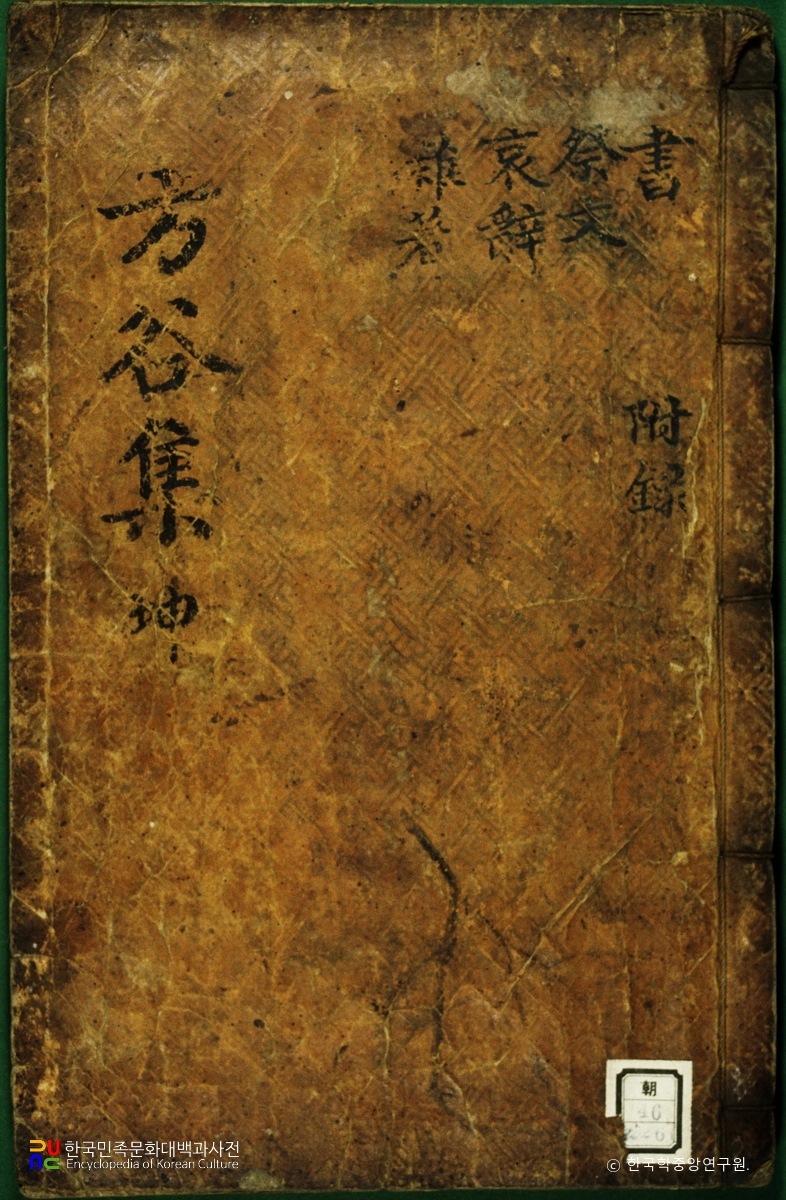 書
祭文
哀辭
雜著
附錄
方谷集 坤
朝
46
한국민족문화대백과사전
Encyclopedia of Korean Culture
© 한국학중앙연구원.